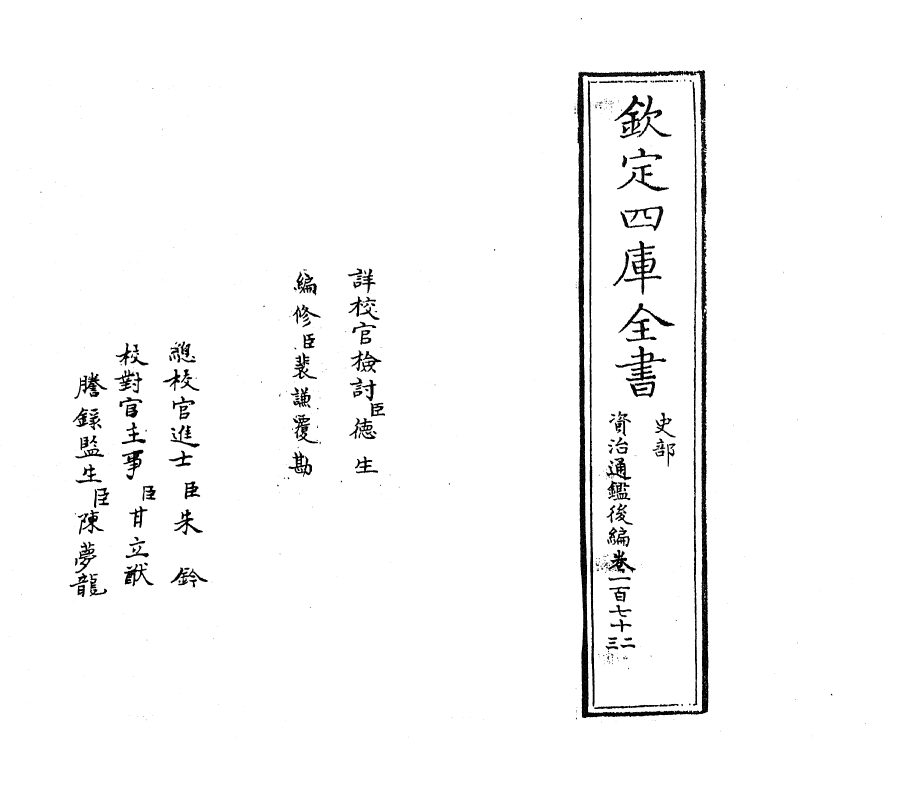 欽定四庫全書
史部
資治通鑑後編卷一百七十二三
詳校官檢討臣德生
編修臣裴謙覆勘
總校官進士臣朱鈐
校對官主事臣甘立猷
謄錄監生臣陳夢龍